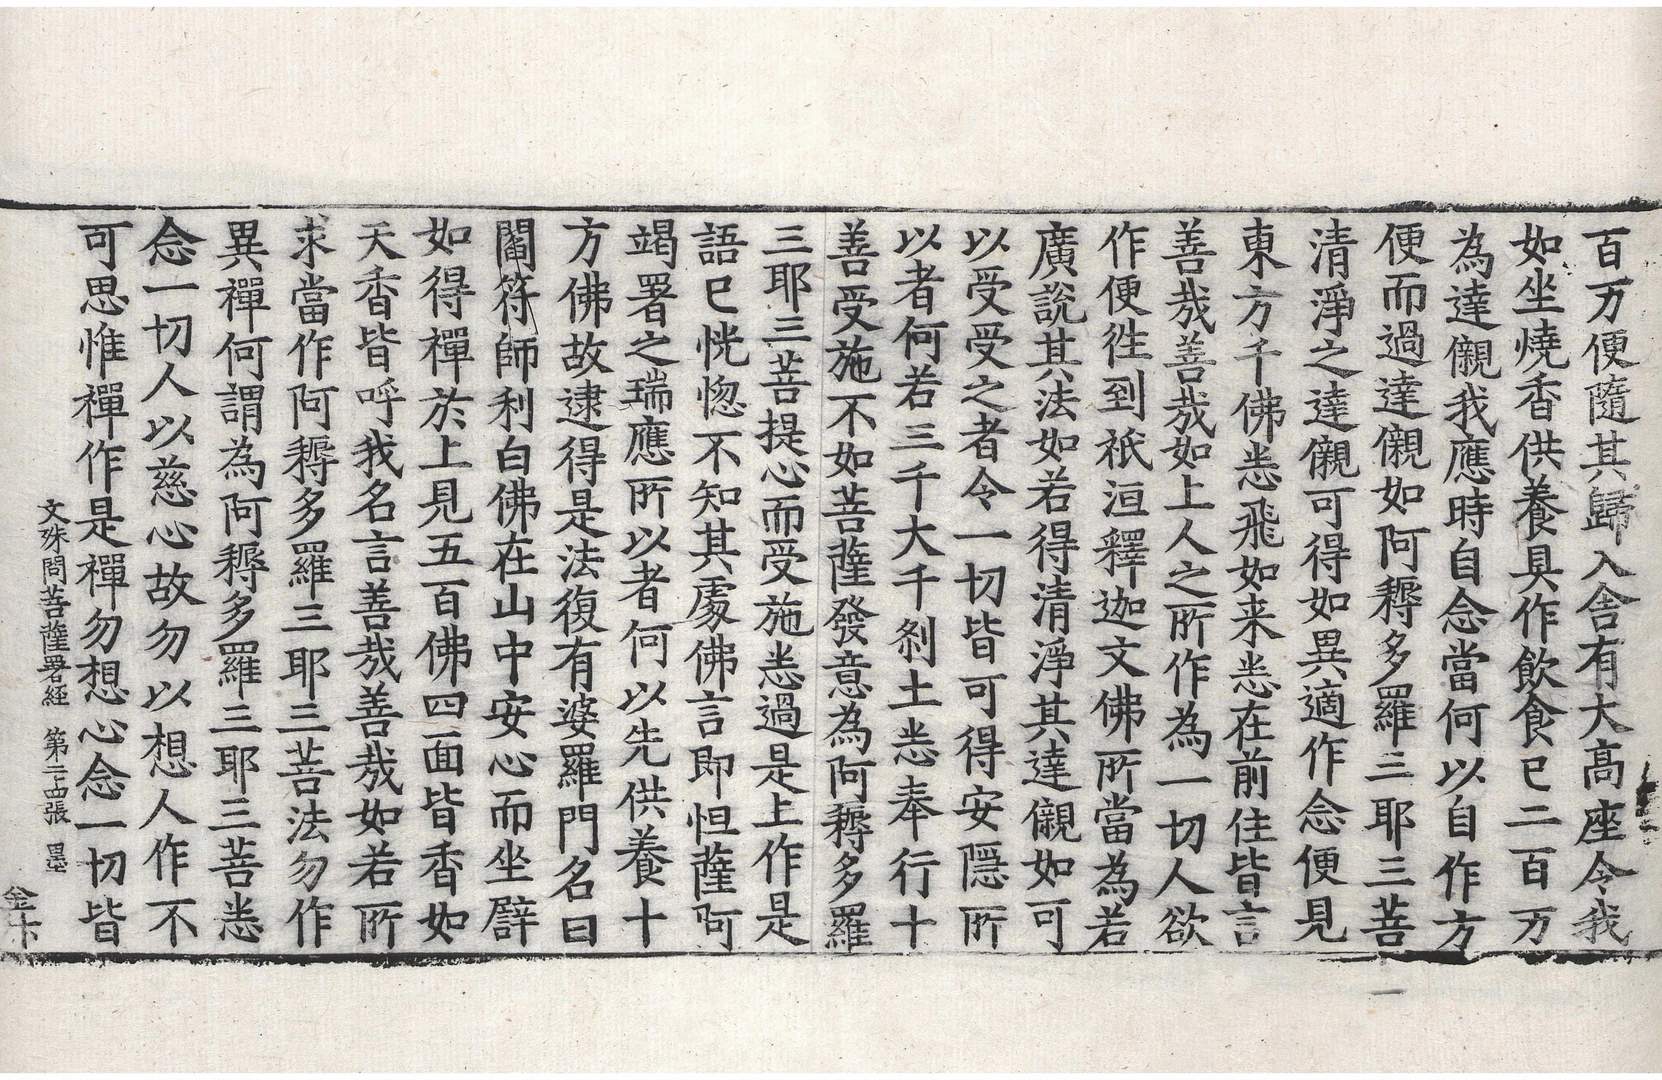 百万便隨其歸入舍有大高座令我
如坐燒香供養具作飲食已二百万
為達儭我應時自念當何以自作方
便而過達儭如阿耨多羅三耶三菩
清淨之達儭可得如異適作念便見
東方千佛悉飛如来悉在前住皆言
善哉善哉如上人之所作為一切人欲
作便徃到祇洹釋迦文佛所當為若
廣說其法如若得清淨其達儭如可
以受受之者令一切皆可得安隱所
以者何若三千大千剎土悉奉行十
善受施不如菩薩發意為阿耨多羅
三耶三菩提心而受施悉過是上作是
語已恍惚不知其處佛言即怛薩阿
竭署之瑞應所以者何以先供養十
方佛故逮得是法復有婆羅門名曰
闍符師利白佛在山中安心而坐譬
如得禪於上見五百佛四面皆香如
天香皆呼我名言善哉善哉如若所
求當作阿耨多羅三耶三菩法勿作
異禪何謂為阿耨多羅三耶三菩悉
念一切人以慈心故勿以想人作不
可思惟禪作是禪勿想心念一切皆
文殊問菩薩署經 第二十四張 墨